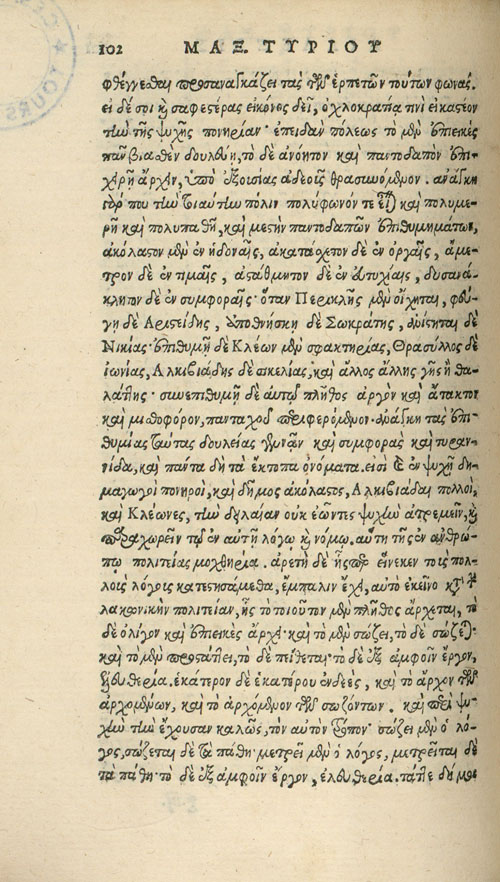 102 ΜΑΞ. ΤΥΡΙΟΥ
φθέγγεσθαι προσαναγκάζει τὰς τῶν ἑρπετῶν τούτων φωνάς.
εἰ δέ σοι κỳ σαφεστέρας εἰκόνος δεῖ, ὀχλοκρατίᾳ τινὶ εἰκαστέον
τὴν τῆς ψυχῆς πονηρίαν· ἐπειδὰν πόλεως τὸ μὲν ἐπιεικὲς
πᾶν βιασθὲν δουλεύῃ, τὸ δὲ ἀνόητον καὶ παντοδαπὸν ἐπι-
χειρῇ ἄρχειν, ὑπὸ ἐξουσίας ἀδεοῦς θρασυνόμενον. ἀνάγκη
γάρ που τὴν τοιαύτην πόλιν πολύφωνόν τε εἶναι καὶ πολυμε-
ρῆ καὶ πολυπαθῆ, καὶ μεστὴν παντοδαπῶν ἐπιθυμημάτων,
ἀκόλαστον μὲν ἐν ἡδοναῖς, ἀκατάσχετον δὲ ἐν ὀργαῖς, ἄμε-
τρον δὲ ἐν τιμαῖς, ἀστάθμητον δὲ ἐν εὐτυχίαις, δυσανά-
κλητον δὲ ἐν συμφοραῖς· ὅταν Περικλῆς μὲν οἴχηται, φεύ-
γῃ δὲ Αριστείδης, ἀποθνήσκῃ δὲ Σωκράτης, δὲ
Νικίας· ἐπιθυμῇ δὲ Κλέων μὲν σφακτηρίας, Θρασύλος δὲ
ἰωνίας, Αλκιβιάδης δὲ σικελίας, καὶ ἄλλος ἄλλης γῆς ἢ θα-
λάττης· συνεπιθυμῇ δὲ αὐτῷ πλῆθος ἀργὸν καὶ ἄτακτον
καὶ μισθοφόρον, πανταχοῦ περιφερόμενον. ἀνάγκη τὰς ἐπι-
θυμίας ταύτας δουλείας γεννᾶν καὶ συμφορὰς καὶ τυραν-
νίδα, καὶ πάντα δὴ τὰ ἔκτοπα ὀνόματα. εἰσὶ ἐν ψυχῇ δη-
μαγωγοὶ πονηροὶ, καὶ δῆμος ἀκόλαστος, Αλκιβιάδαι πολλοὶ,
καὶ Κλέωνες, τὴν δειλαίαν οὐκ ἐῶντες ψυχὴν ἀτρεμεῖν, κỳ
παραχωρεῖν τῷ ἐν αὐτῇ λόγῳ κỳ νόμῳ. αὕτη τῆς ἐν ἀνθρώ-
πῳ πολιτείας μοχθηρία. ἀρετὴ δὲ ἧς περ εἵνεκεν τοῖς πολ-
λοῖς λόγοις κατεστησάμεθα, ἔμπαλιν ἔχει, αὐτὸ ἐκεῖνο κατὰ τὴν
λακωνικὴν πολιτείαν, ἧς τὸ τοιοῦτον μὲν πλῆθος ἄρχεται, τὸ
δὲ ὀλίγον καὶ ἐπιεικὲς ἄρχει· καὶ τὸ μὲν σώζει, τὸ δὲ σώζεται·
καὶ τὸ μὲν προστάττει, τὸ δὲ πείθεται· τὸ δὲ ἐξ ἀμφοῖν ἔργον,
ἐλευθερία. ἑκάτερον δὲ ἑκατέρου ἐνδεὲς, καὶ τὸ ἄρχον τῶν
ἀρχομένων, καὶ τὸ ἀρχόμενον τῶν σωζόντων. καὶ περὶ ψυ-
χὴν τὴν ἔχουσαν καλῶς, τὸν αὐτὸν τρόπον· σώζει μὲν ὁ λό-
γος, σώζεται δὲ τὰ πάθη· μετρεῖ μὲν ὁ λόγος, μετρεῖται δὲ
τὰ πάθη· τὸ δὲ ἐξ ἀμφοῖν ἔργον, ἐλευθερία. τάττε δή μοι
TOURS